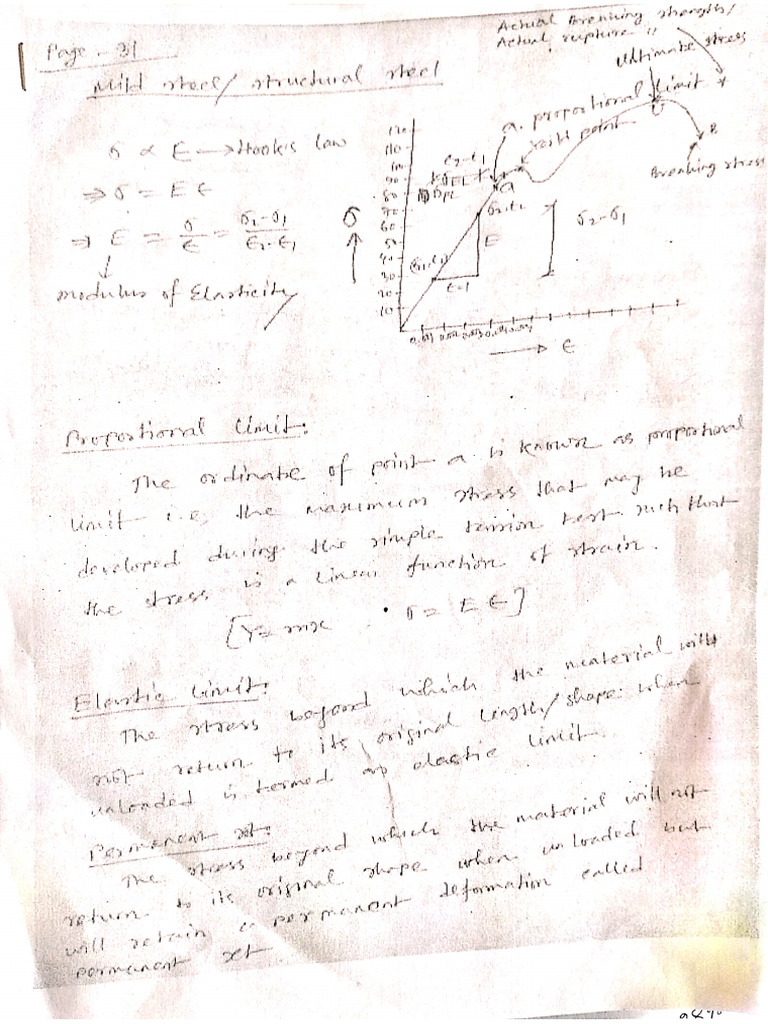 Page - 31
Actual Breaking strength/
Actual rupture "
Mild steel/structural steel
Ultimate stress
a. proportional limit
Yield point
Breaking stress
σ ∝ E → Hook's law
⇒ σ = E ϵ
⇒ E = σ/ϵ = (σ2-σ1)/(ϵ2-ϵ1)
modulus of Elasticity
σ
110
90
80
70
60
50
40
30
20
10
a
U
E
σ2-σ1
ϵ
Proportional limit:
The ordinate of point a is known as proportional
limit i.e. the maximum stress that may be
developed during the simple tension test such that
the stress is a linear function of strain.
[Y= mx σ = E ϵ]
Elastic limit:
The stress beyond which the material will
not return to its original length/shape when
unloaded is termed as elastic limit
Permanent set:
The stress beyond which the material will not
return to its original shape when unloaded but
will retain a permanent deformation called
permanent set.